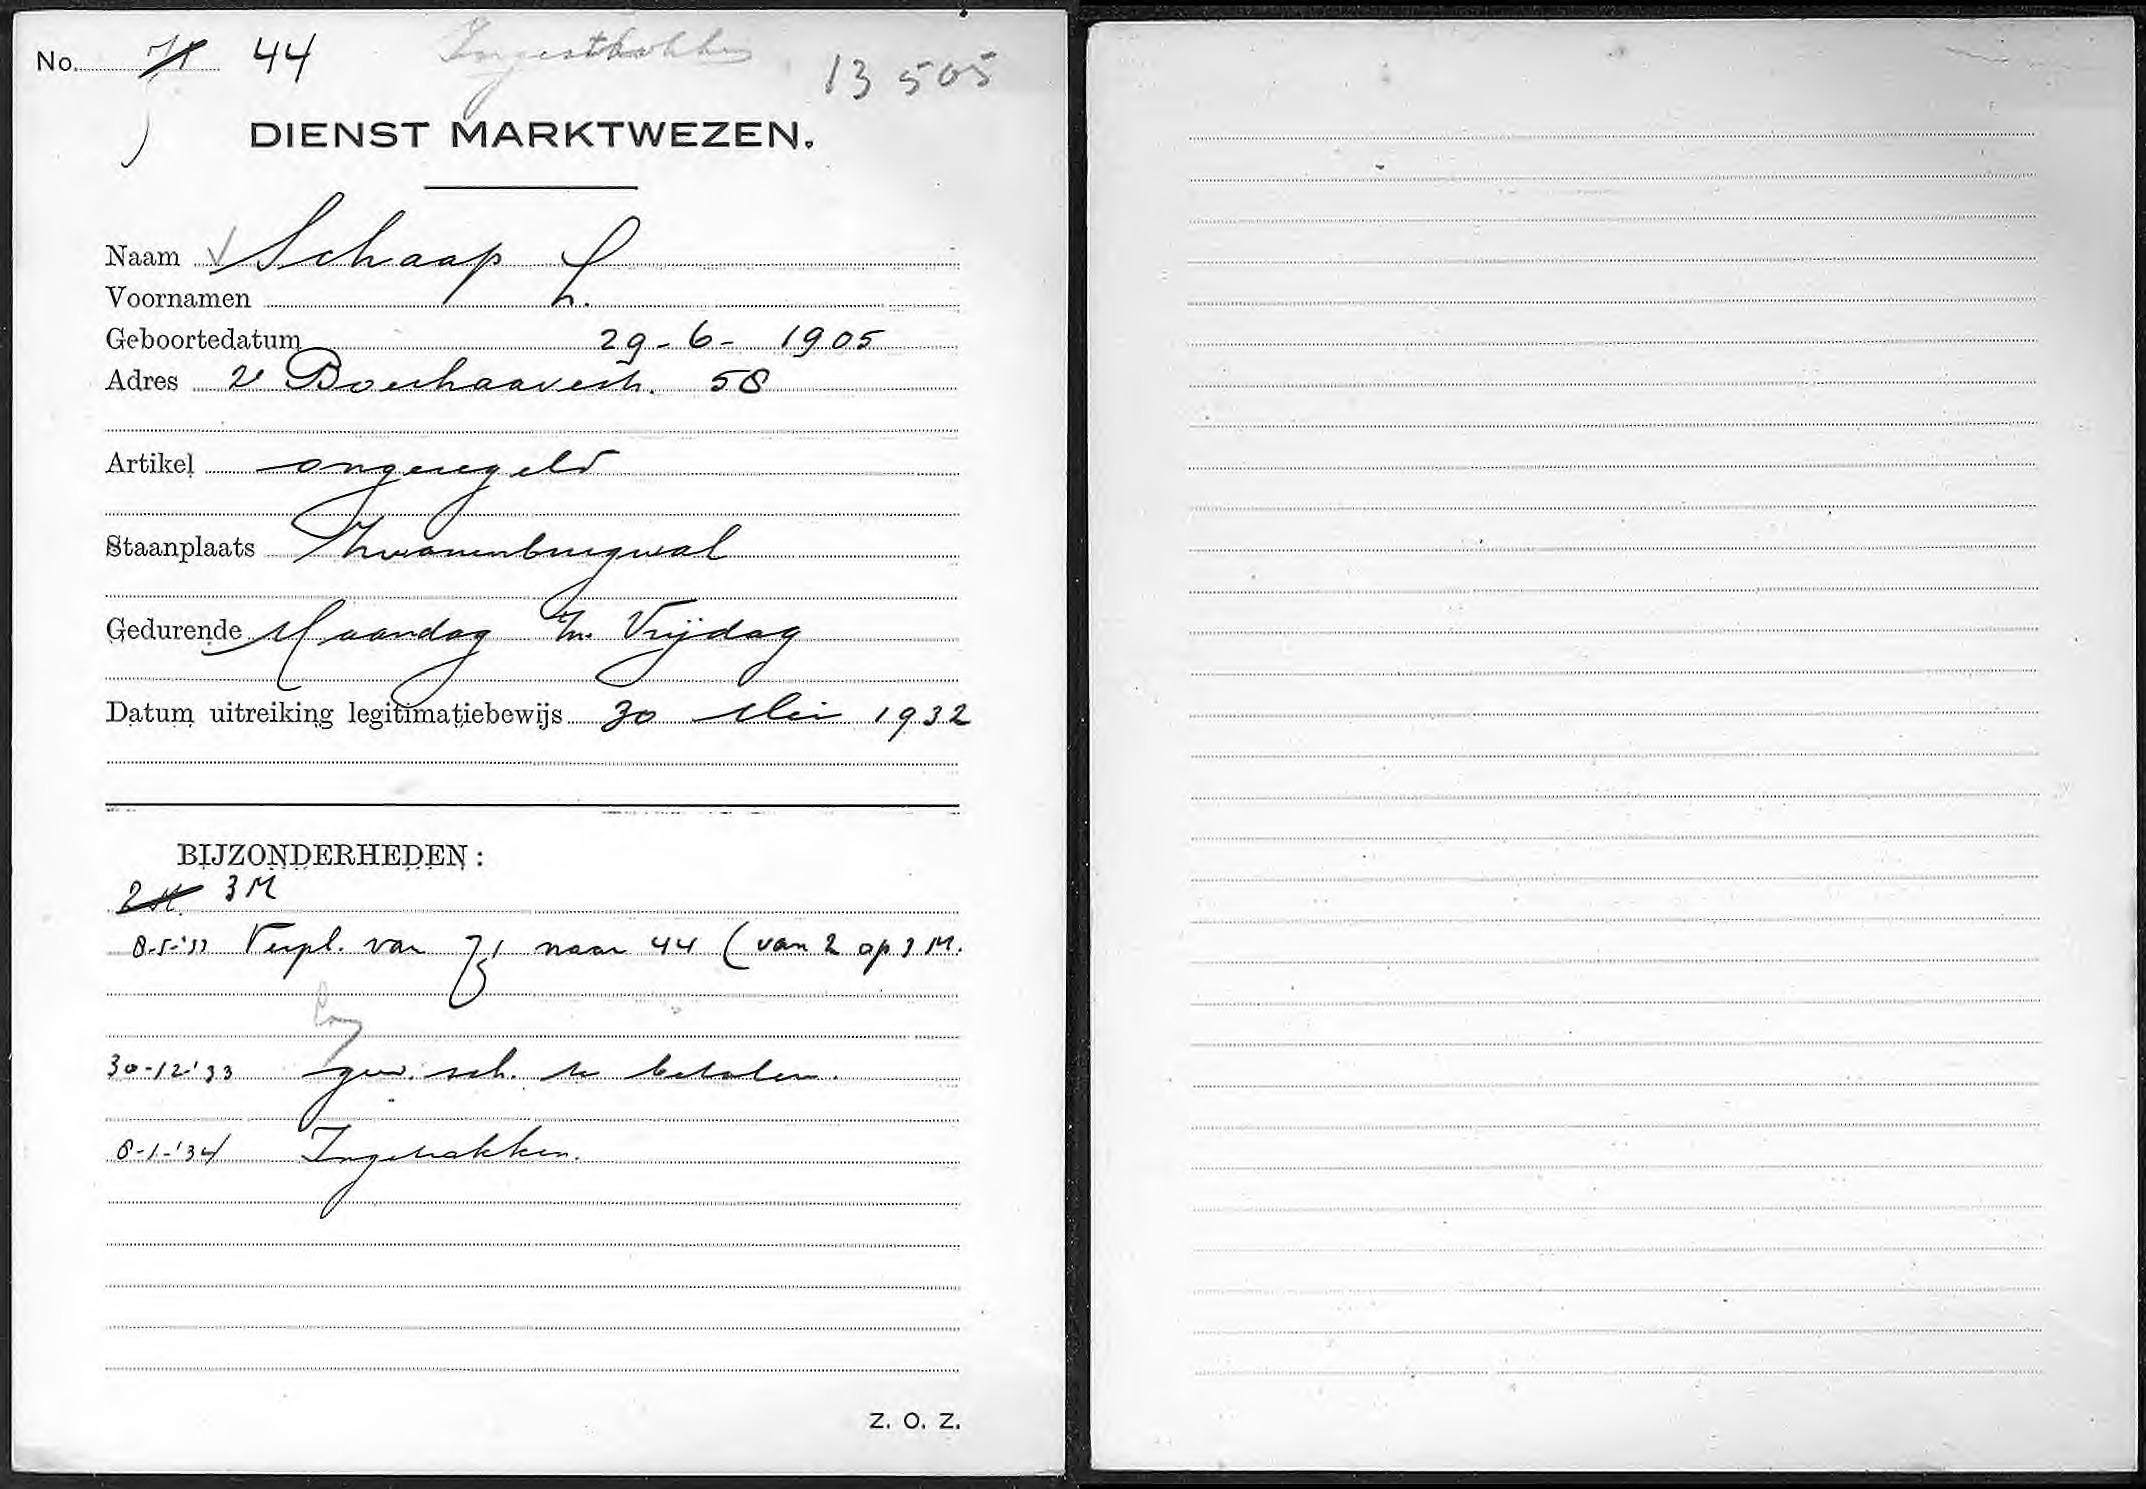 No. 71 44 Ingetrokken 13505
DIENST MARKTWEZEN.
Naam Schaap L.
Voornamen
Geboortedatum 29-6-1905
Adres 2e Boerhaavestr. 58
Artikel ongeregeld
Staanplaats Zwanenburgwal
Gedurende Maandag t/m Vrijdag
Datum uitreiking legitimatiebewijs 30 Mei 1932
BIJZONDERHEDEN:
2 M. 3 M
Verpl. van 71 naar 44 (van 2 op 3 M.
30-12-'33 gew. sch. te betalen.
8-1-'34 Ingetrokken.
Z. O. Z.